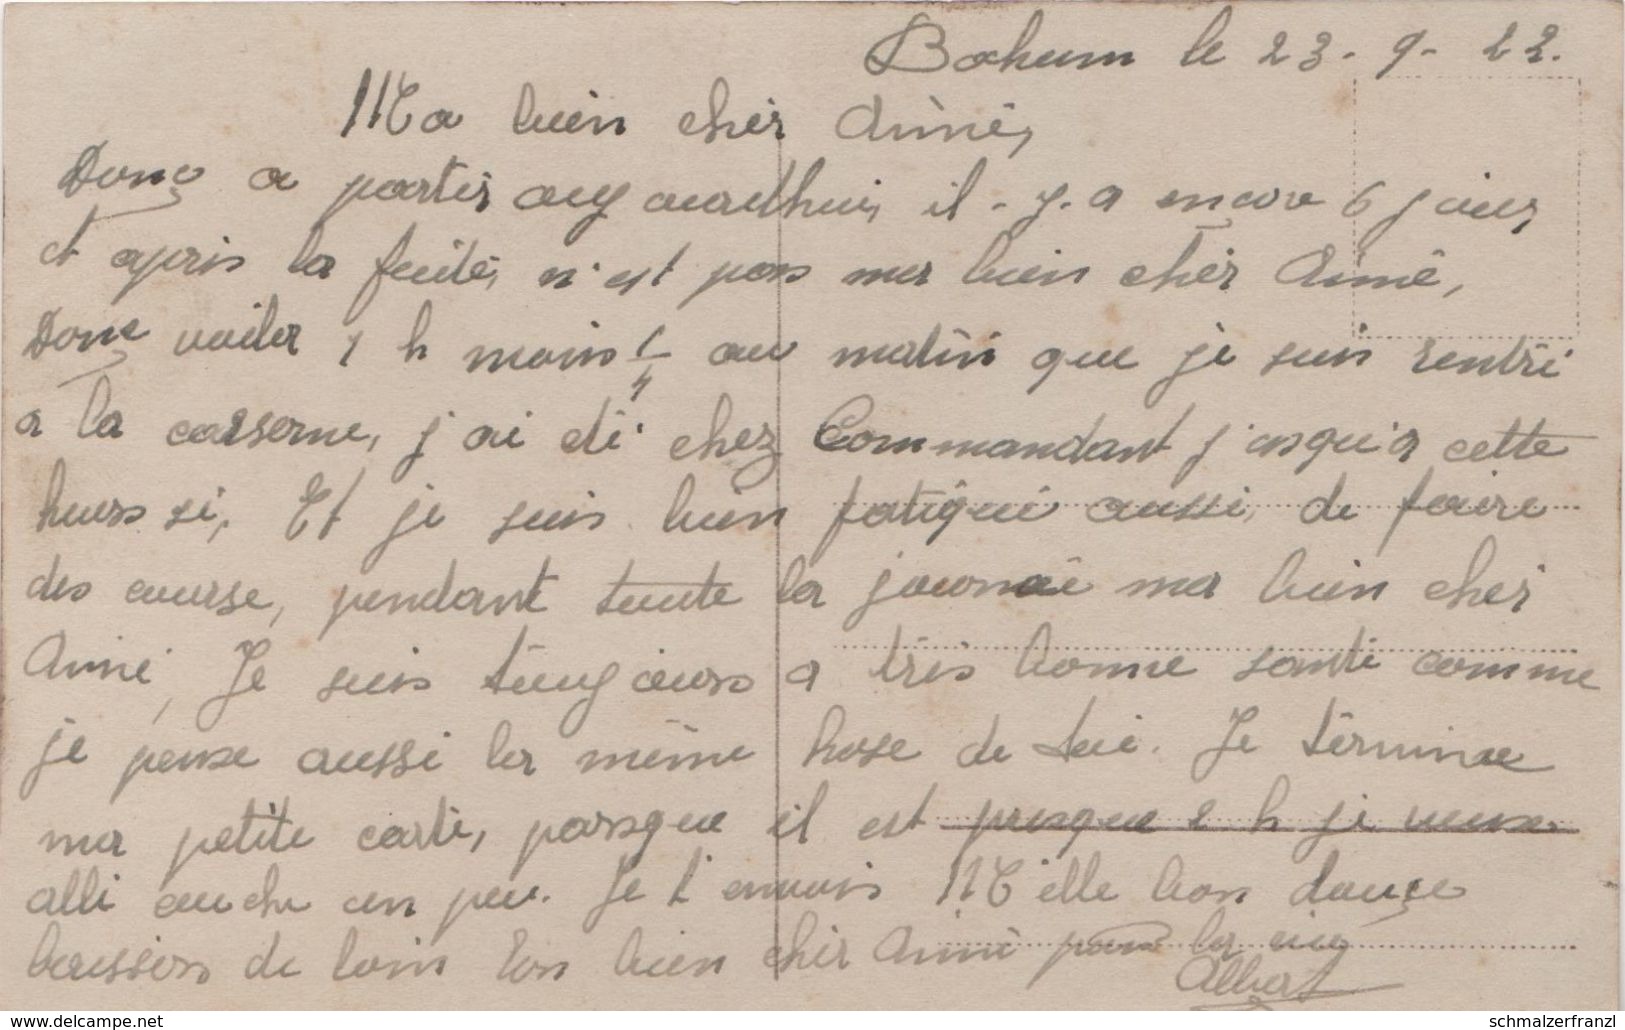 Bochum le 23 - 9 - 22.
Ma bien cher Aimé,
Donc a partir aujourdhui, il - y - a encore 6 jours,
et apris la fuite, n'est pas ma bien cher Aimé,
Donc voila 1 h moins 1/4 au matin que je suis rentré
a la casserne, j'ai été chez Commandant j'usqu'a cette
heurs si, Et je suis bien fatigué aussi, de faire
des course, pendant toute la journaé ma bien cher
Aimé, Je suis toujours a très bonne santé comme
je pense aussi la même hose de toi. Je términe
ma petite carte, parsque il est presque 1 h je veux
alli couché un peu. Je t'envois Mille bon douce
baissers de loin Ton bien cher Aimé pour la vie
Albert
www.delcampe.net
schmalzerfranzl